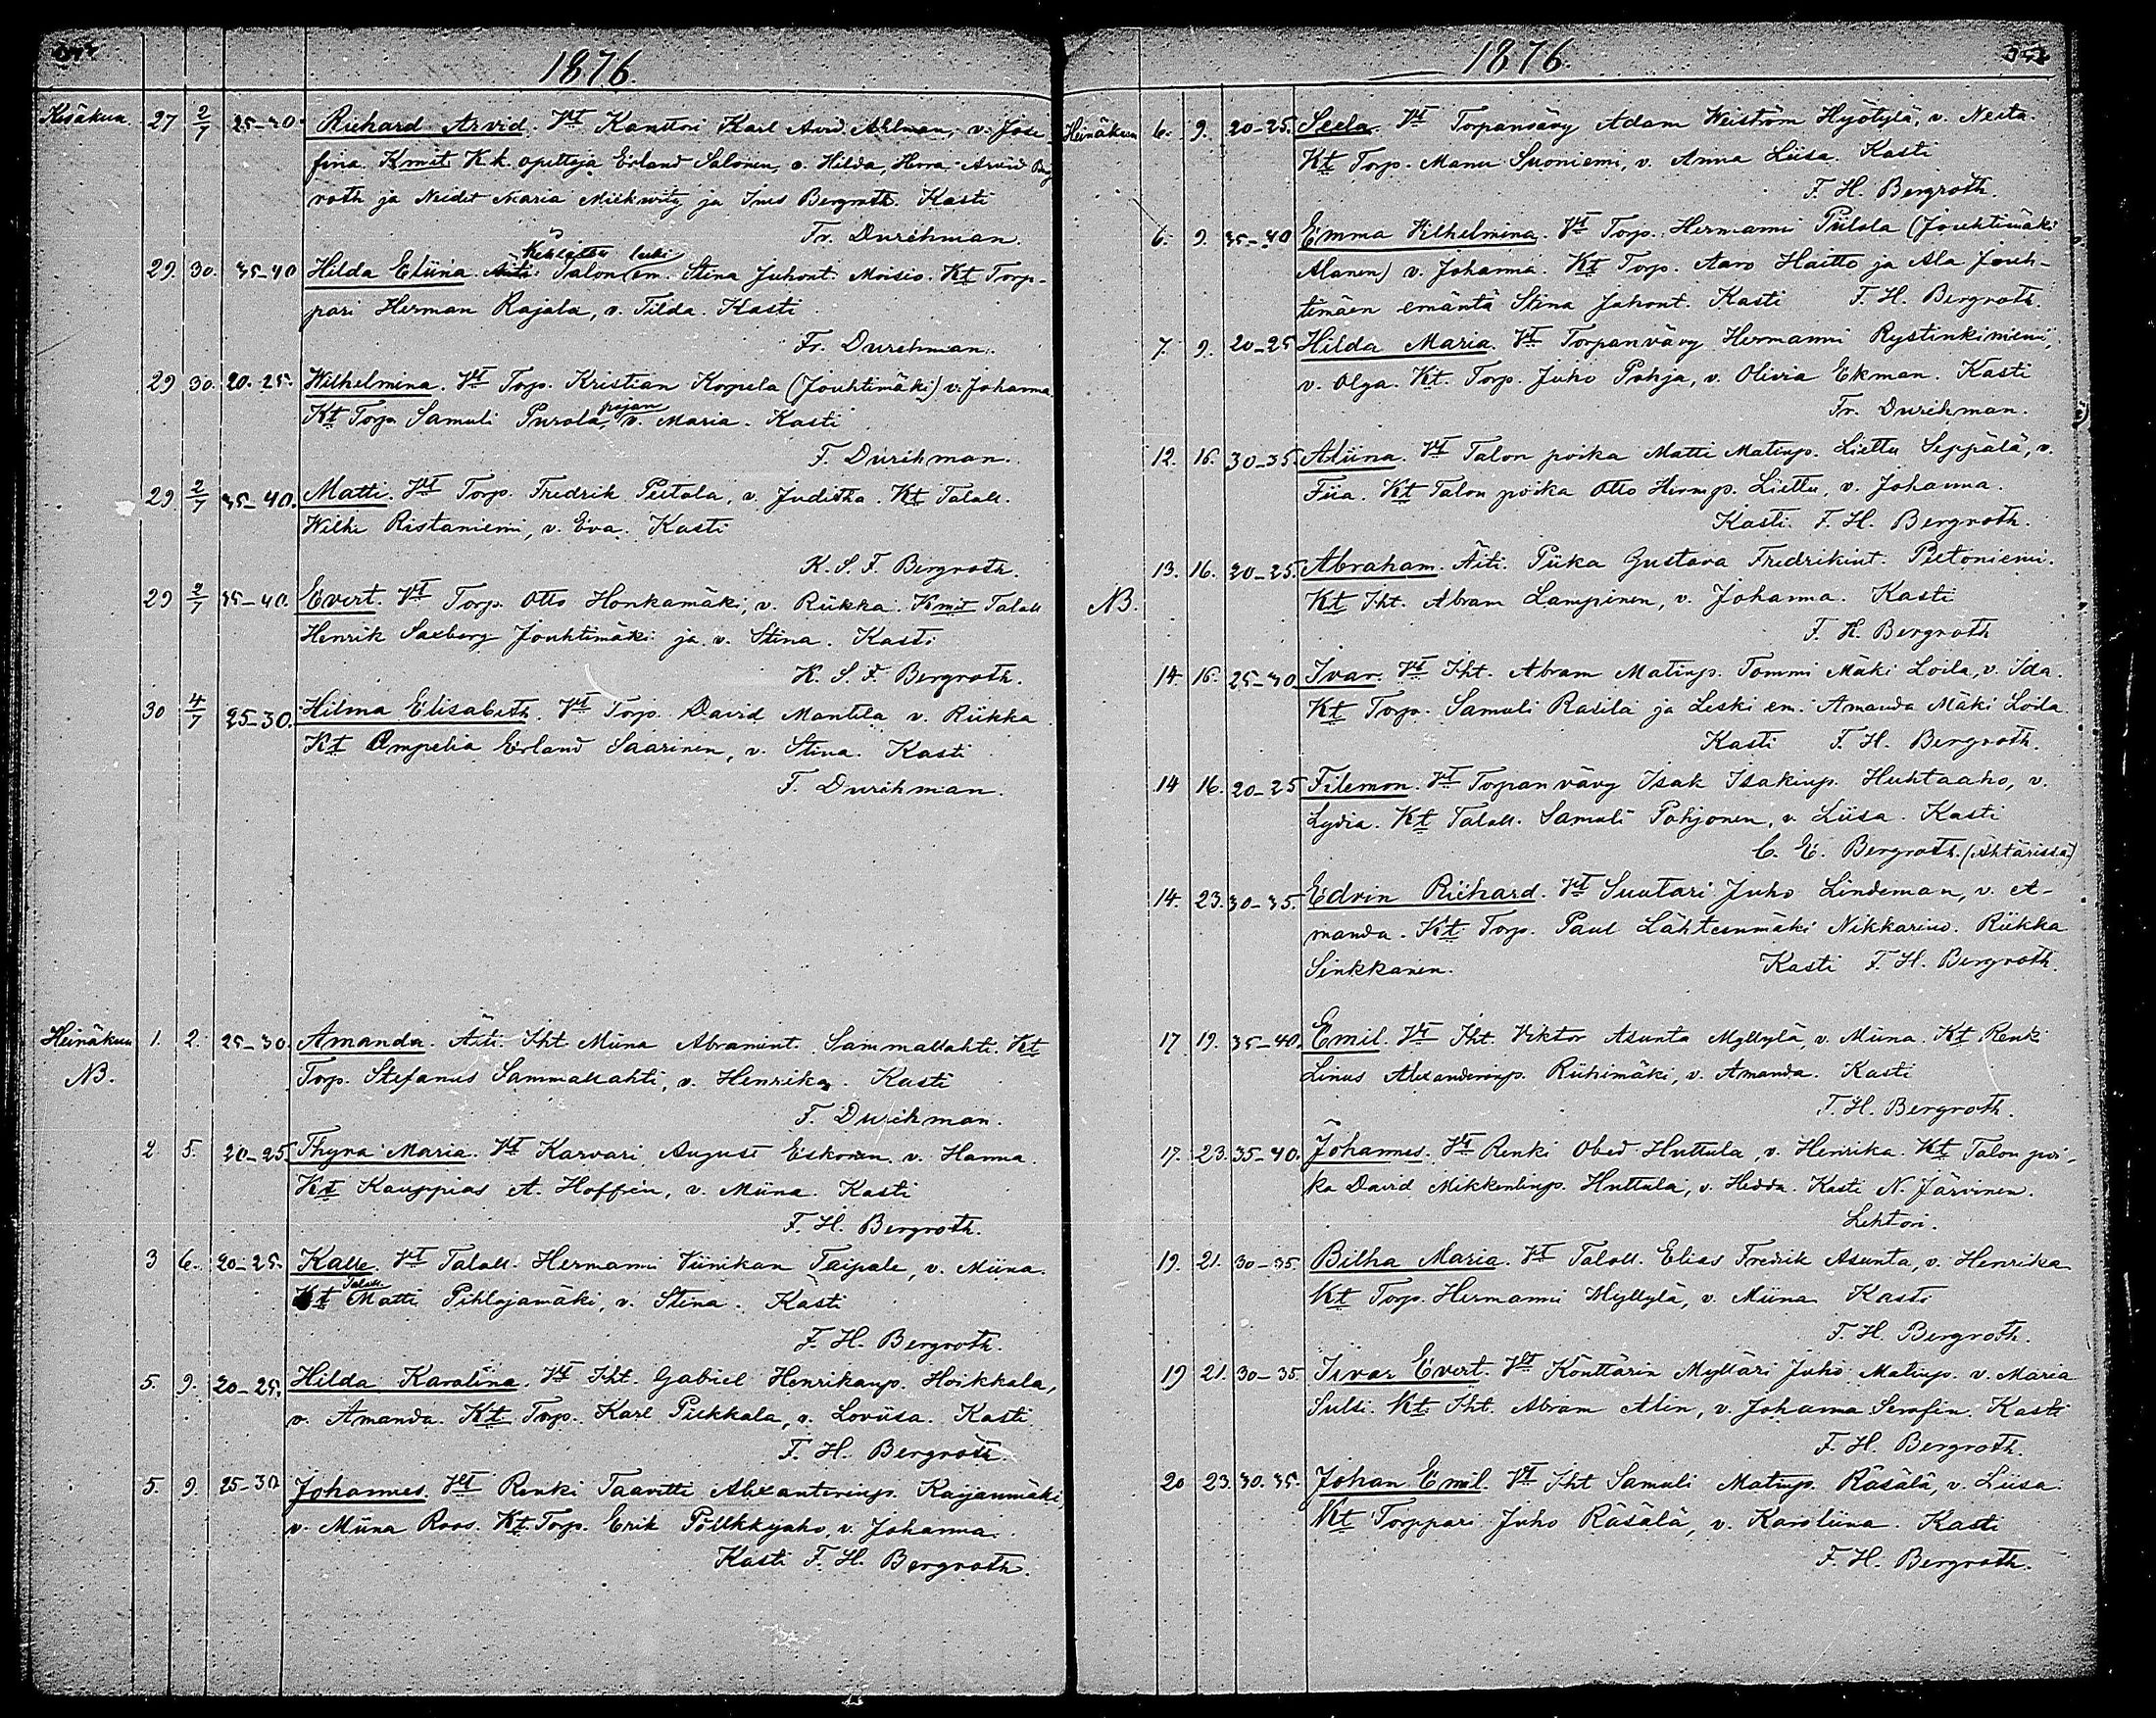 1876.
Kesäkuu. 27 2/7 25-30. Richard Arvid. Vt Kanttori Karl Arvid Ahlman, v. Jose-
fina. Kmit K.k. opettaja Erland Salonen, v. Hilda, Herra Arvid Berg
roth ja Neidet Maria ja Ines Bergroth. Kasti
Fr. Durchman.
29. 30. 35-40 Hilda Eliina. Äiti: Talon em. Stina Juhont. Moisio. Kt Torp-
pari Herman Rajala, v. Tilda. Kasti
Fr. Durchman.
29 30. 20-25. Wilhelmina. Vt Torp. Kristian Korpela (Jouhtimäki) v. Johanna.
Kt Torp. Samuli Purola, pojan v. Maria. Kasti
F. Durchman.
29. 2/7 35-40. Matti. Vt Torp. Fredrik Peltola, v. Juditha. Kt Talall.
Wilhe Ristaniemi, v. Eva. Kasti
K. S. F. Bergroth.
29 2/7 35-40. Evert. Vt Torp. Otto Honkamäki, v. Riikka. Kmit Talall
Henrik Saxberg Jouhtimäki ja v. Stina. Kasti
K. S. F. Bergroth.
30 4/7 25-30. Hilma Elisabeth. Vt Torp. David Mantila v. Riikka
Kt Ompelia Erland Saarinen, v. Stina. Kasti
F. Durchman.
Heinäkuu 1. 2. 25-30. Amanda. Äiti. Iht. Miina Abramint. Sammallahti. Kt
NB. Torp. Stefanus Sammallahti, v. Henrika. Kasti
F. Durchman.
2 5. 20-25 Thyra Maria. Vt Karvari August Eskonen v. Hanna.
Kt Kauppias A. Hoffrén, v. Miina. Kasti
F. H. Bergroth.
3 6. 20-25. Kalle. Vt Talall. Hermanni Viinikan Taipale, v. Miina.
Kt Talall. Matti Pihlajamäki, v. Stina. Kasti
F. H. Bergroth.
5. 9. 20-25. Hilda Karoliina. Vt Iht. Gabriel Henrikanp. Hoikkala,
v. Amanda. Kt Torp. Karl Pirkkala, v. Loviisa. Kasti
F. H. Bergroth.
5. 9. 25-30 Johannes. Vt Renki Taavitti Alexanterinp. Kaijanmäki
v. Miina Roos. Kt. Torp. Erik Pöllkkyaho, v. Johanna.
Kasti F. H. Bergroth.
1876.
Heinäkuu 6. 9. 20-25. Seela. Vt Torpanvävy Adam Weiström Hyötylä, v. Neita.
Kt Torp. Manu Suoniemi, v. Anna Liisa. Kasti
F. H. Bergroth.
6. 9. 35-40 Emma Vilhelmina. Vt Torp. Hermanni Piilola (Jouhtimäki
Alanen) v. Johanna. Kt Torp. Aaro Haitto ja Ala Jouh-
timäen emäntä Stina Juhont. Kasti F. H. Bergroth.
7. 9. 20-25 Hilda Maria. Vt Torpanvävy Hermanni Rystinkiniemi,
v. Olga. Kt. Torp. Juho Pohja, v. Olivia Ekman. Kasti
Fr. Durchman.
12. 16. 30-35. Aliina. Vt Talon poika Matti Matinp. Liettu Seppälä, v.
Fiia. Kt Talon poika Otto Hermp. Liettu, v. Johanna.
Kasti. F. H. Bergroth.
13. 16. 20-25. Abraham. Äiti. Piika Gustava Fredrikint. Peltoniemi.
NB. Kt Iht. Abram Lampinen, v. Johanna. Kasti
F. H. Bergroth
14. 16. 25-30 Ivar. Vt Iht. Abram Matinp. Tommi Mäki Loila, v. Ida.
Kt Torp. Samuli Rasila ja Leski em. Amanda Mäki Loila
Kasti F. H. Bergroth.
14 16. 20-25 Filemon. Vt Torpan vävy Isak Isakinp. Huhtaaho, v.
Lydia. Kt Talall. Samuli Pohjonen, v. Liisa. Kasti
C. E. Bergroth. (Ähtärissä)
14. 23. 30-35. Edvin Richard. Vt Suutari Juho Lindeman, v. A-
manda. Kt Torp. Paul Lähteenmäki Nikkarinv. Riikka
Sinkkanen. Kasti F. H. Bergroth.
17 19. 35-40. Emil. Vt Iht. Viktor Asunta Myllylä, v. Miina. Kt Renki
Linus Alexanderinp. Riihimäki, v. Amanda. Kasti
F. H. Bergroth.
17. 23. 35-40. Johannes. Vt Renki Obed Huttula, v. Henrika. Kt Talon poi-
ka David Mikkelinp. Huttula, v. Hedda. Kasti N. Järvinen.
Lehtori.
19. 21. 30-35 Bilha Maria. Vt Talall. Elias Fredrik Asunta, v. Henrika
Kt Torp. Hermanni Myllylä, v. Miina Kasti
F. H. Bergroth.
19 21. 30-35 Iivar Evert. Vt Könttärin Mylläri Juho Matinp. v. Maria
Sulsi. Kt. Iht. Abram Alin, v. Johanna Serafin. Kasti
F. H. Bergroth.
20 23. 30.35. Johan Emil. Vt Iht Samuli Matinp. Räsälä, v. Liisa.
Kt Torppari Juho Räsälä, v. Karoliina. Kasti
F. H. Bergroth.